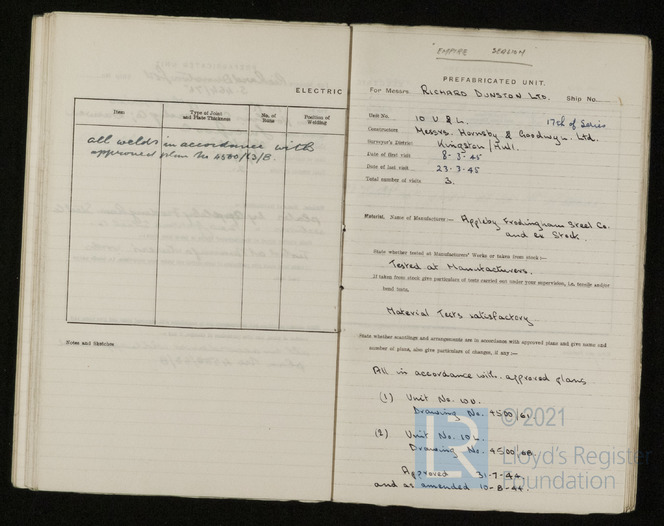 ELECTRIC
Item
Type of Joint and Plate Thickness
No. of Runs
Position of Welding
all welds in accordance with
approved plan No 4500/63/B.
Notes and Sketches
EMPIRE SENIOR
PREFABRICATED UNIT.
For Messrs. RICHARD DUNSTON LTD. Ship No.
Unit No. 10 U & L. 17th of Series
Constructors Messrs. Hornsby & Goodwyn. Ltd.
Surveyor's District Kingston / Hull.
Date of first visit 8-3-45
Date of last visit 23-3-45
Total number of visits 3.
Material. Name of Manufacturer:- Appleby Frodingham Steel Co.
and ex Stock.
State whether tested at Manufacturers' Works or taken from stock:-
Tested at Manufacturers.
If taken from stock give particulars of tests carried out under your supervision, i.e. tensile and/or
bend tests.
Material Tests satisfactory
State whether scantlings and arrangements are in accordance with approved plans and give name and
number of plans, also give particulars of changes, if any:-
All in accordance with approved plans
(1) Unit No. 10U.
Drawing No. 4500/61.
(2) Unit No. 10L.
Drawing No. 4500/
Approved 31-7-44
and as amended 10-8-44.
LR
© 2021
Lloyd's Register
Foundation